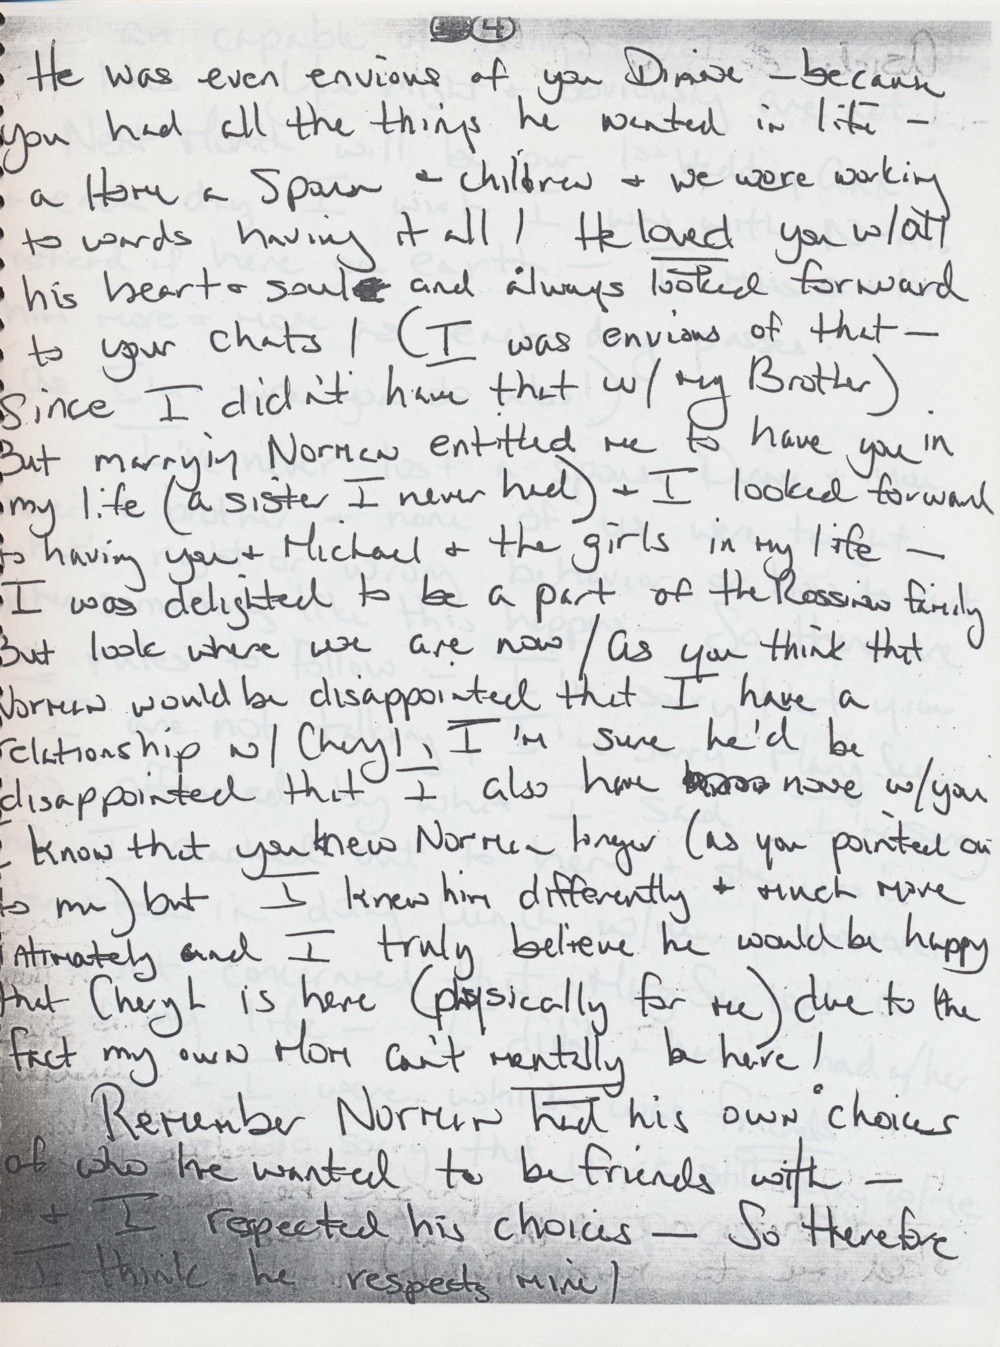 4
He was even envious of you Diane – because
you had all the things he wanted in life –
a Home a Spouse + children + we were working
towards having it all! He loved you w/all
his heart + soul and always looked forward
to your chats! (I was envious of that –
Since I didn't have that w/ my Brother)
But marrying Norman entitled me to have you in
my life (a sister I never had) + I looked forward
to having you + Michael + the girls in my life –
I was delighted to be a part of the family
But look where we are now! As you think that
Norman would be disappointed that I have a
relationship w/ Cheryl, I'm sure he'd be
disappointed that I also have none w/you
I know that you knew Norman longer (as you pointed out
to me) but I knew him differently + much more
intimately and I truly believe he would be happy
that Cheryl is here (physically for me) due to the
fact my own Mom can't mentally be here!
Remember Norman had his own choices
of who he wanted to be friends with –
+ I respected his choices – So therefore
I think he respects mine!